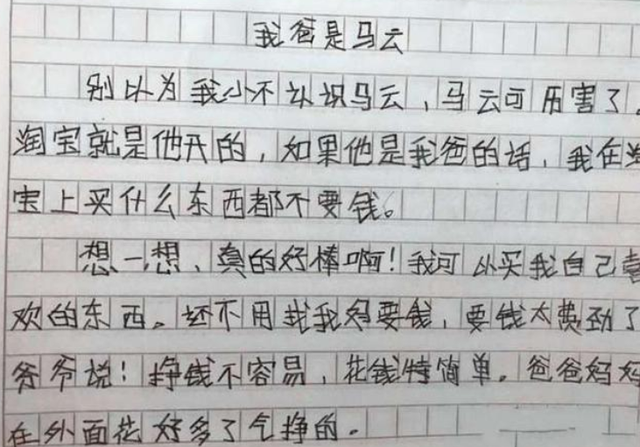 我爸是马云
别以为我小不认识马云，马云可历害了，
淘宝就是他开的，如果他是我爸的话，我在淘
宝上买什么东西都不要钱。
想一想，真的好棒啊！我可以买我自己喜
欢的东西。还不用找我妈要钱，要钱太费劲了
爷爷说！挣钱不容易，花钱特简单。爸爸妈妈
在外面花好多了气挣的。